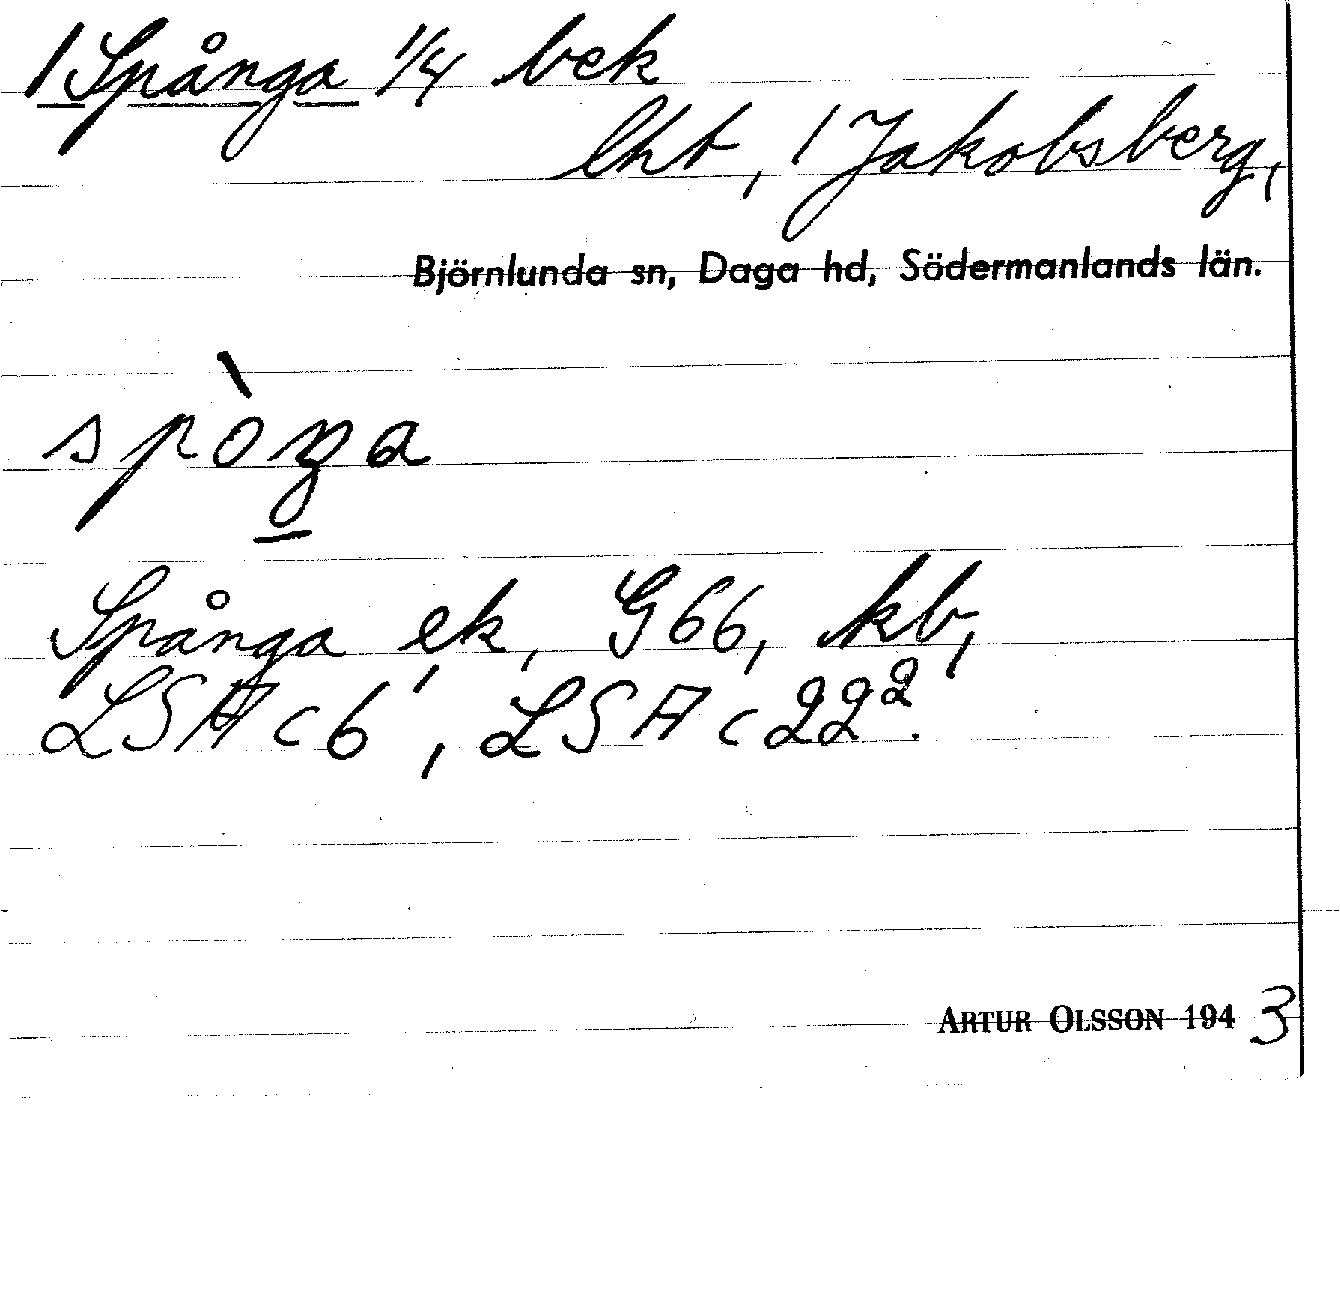 /Spånga 1/4 bek
lht, /Jakobsberg,
Björnlunda sn, Daga hd, Södermanlands län.
spòŋa
Spånga, ek, G66, kb,
LSA c6, LSA c22².
ARTUR OLSSON 1943